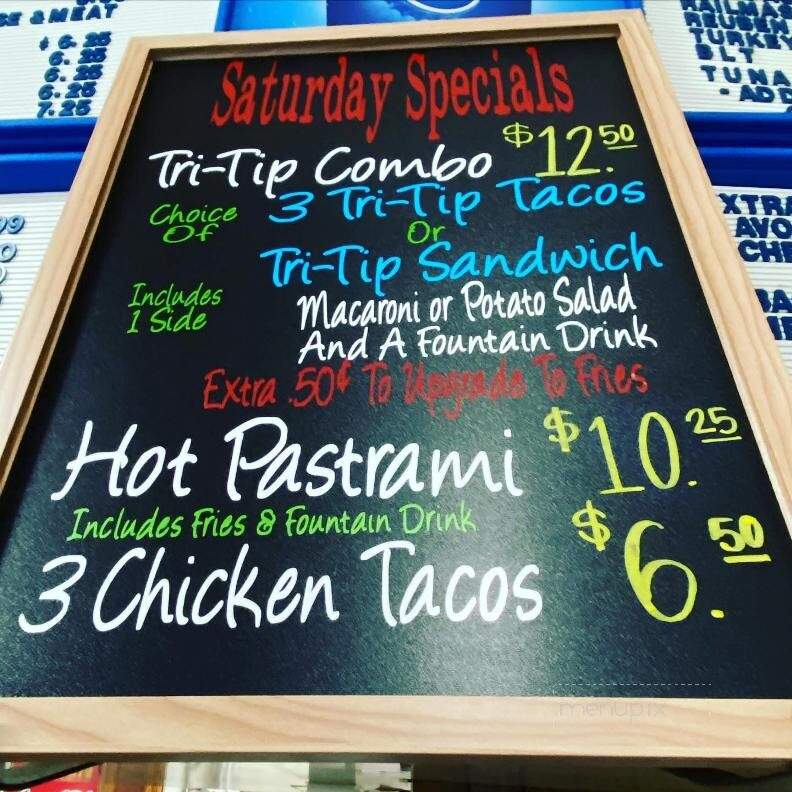 Saturday Specials
Tri-Tip Combo $12.50
Choice Of 3 Tri-Tip Tacos
Or
Tri-Tip Sandwich
Includes 1 Side Macaroni or Potato Salad
And A Fountain Drink
Extra .50¢ To Upgrade To Fries
Hot Pastrami $10.25
Includes Fries & Fountain Drink
3 Chicken Tacos $6.50
menupix
& MEAT
$6.25
6.25
6.25
7.25
REUBEN
TURKEY
BLT
TUNA